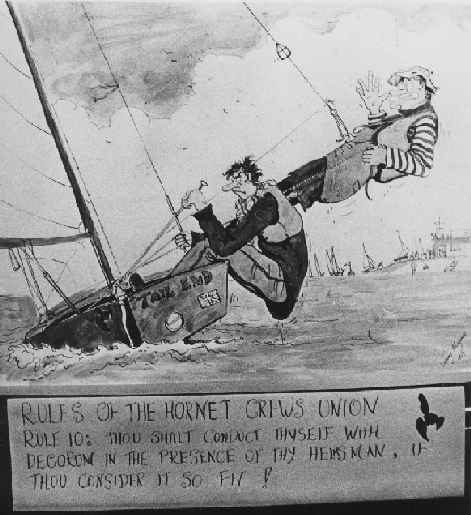 TAIL END
RULES OF THE HORNET CREWS UNION
RULE 10: THOU SHALT CONDUCT THYSELF WITH
DECORUM IN THE PRESENCE OF THY HELMSMAN, IF
THOU CONSIDER IT SO FIT !